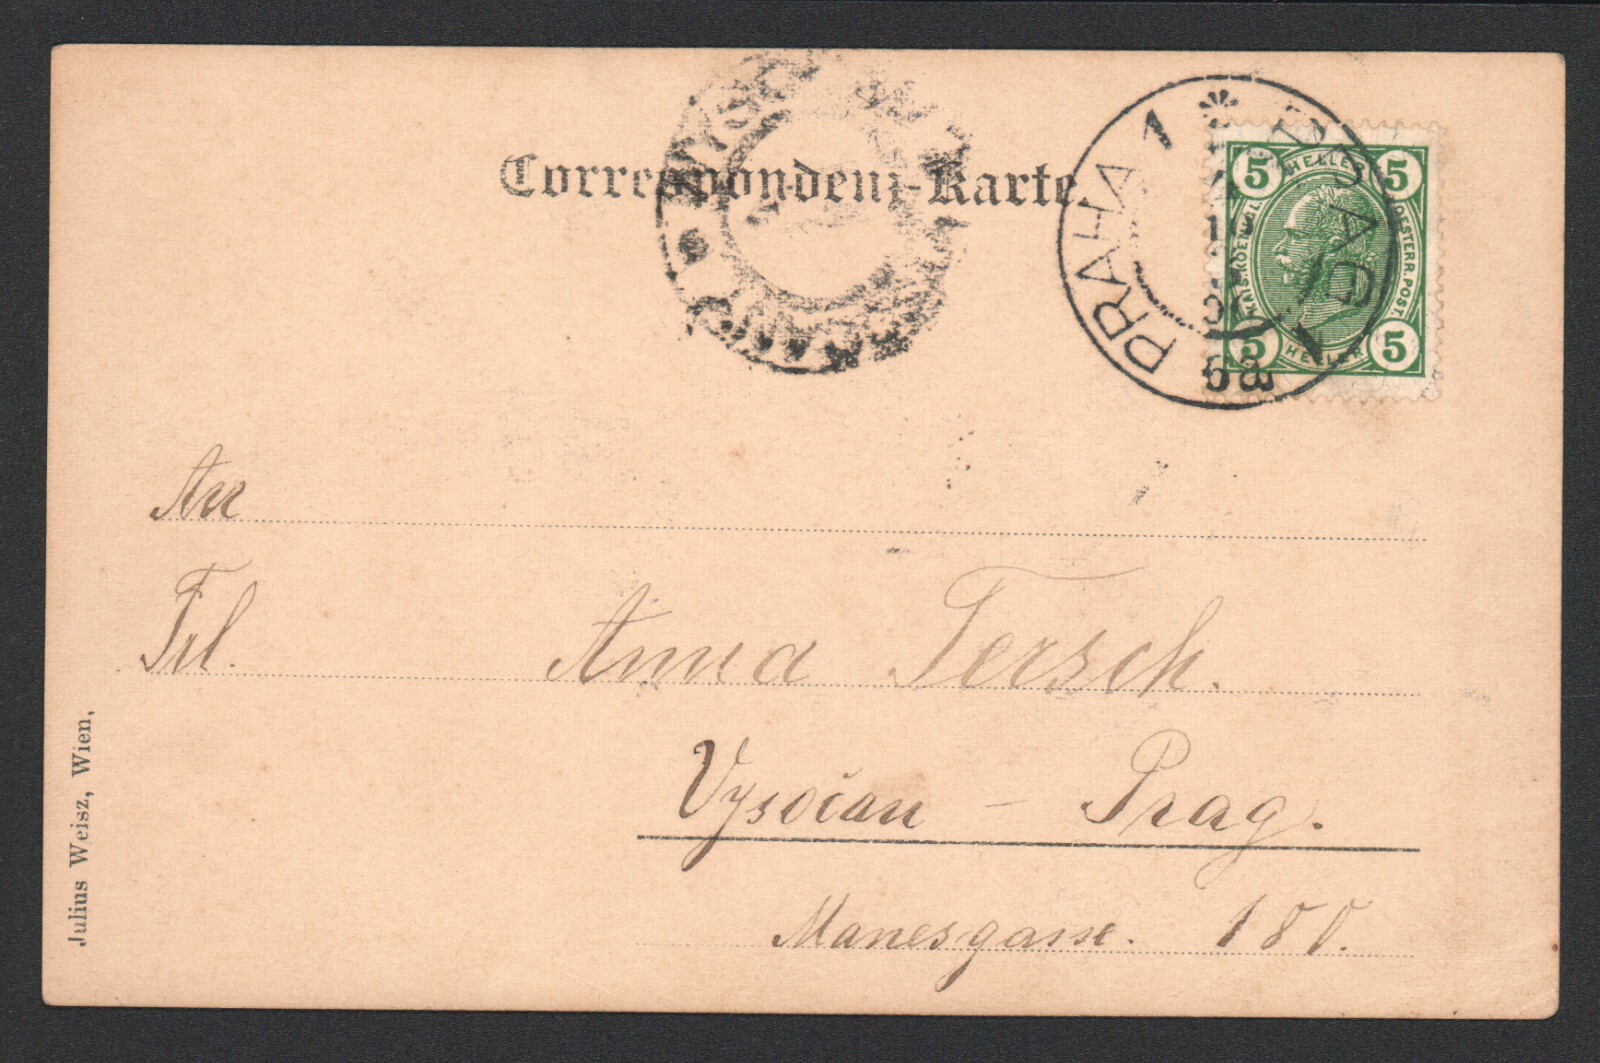 Correspondenz-Karte.
PRAHA 1 * PRAG 1
6a
5 HELLER 5
KAIS. KOENIGL. OESTERR. POST.
5 HELLER 5
An
Frl. Anna Tersch.
Vysočan – Prag.
Manesgasse. 180.
Julius Weisz, Wien,